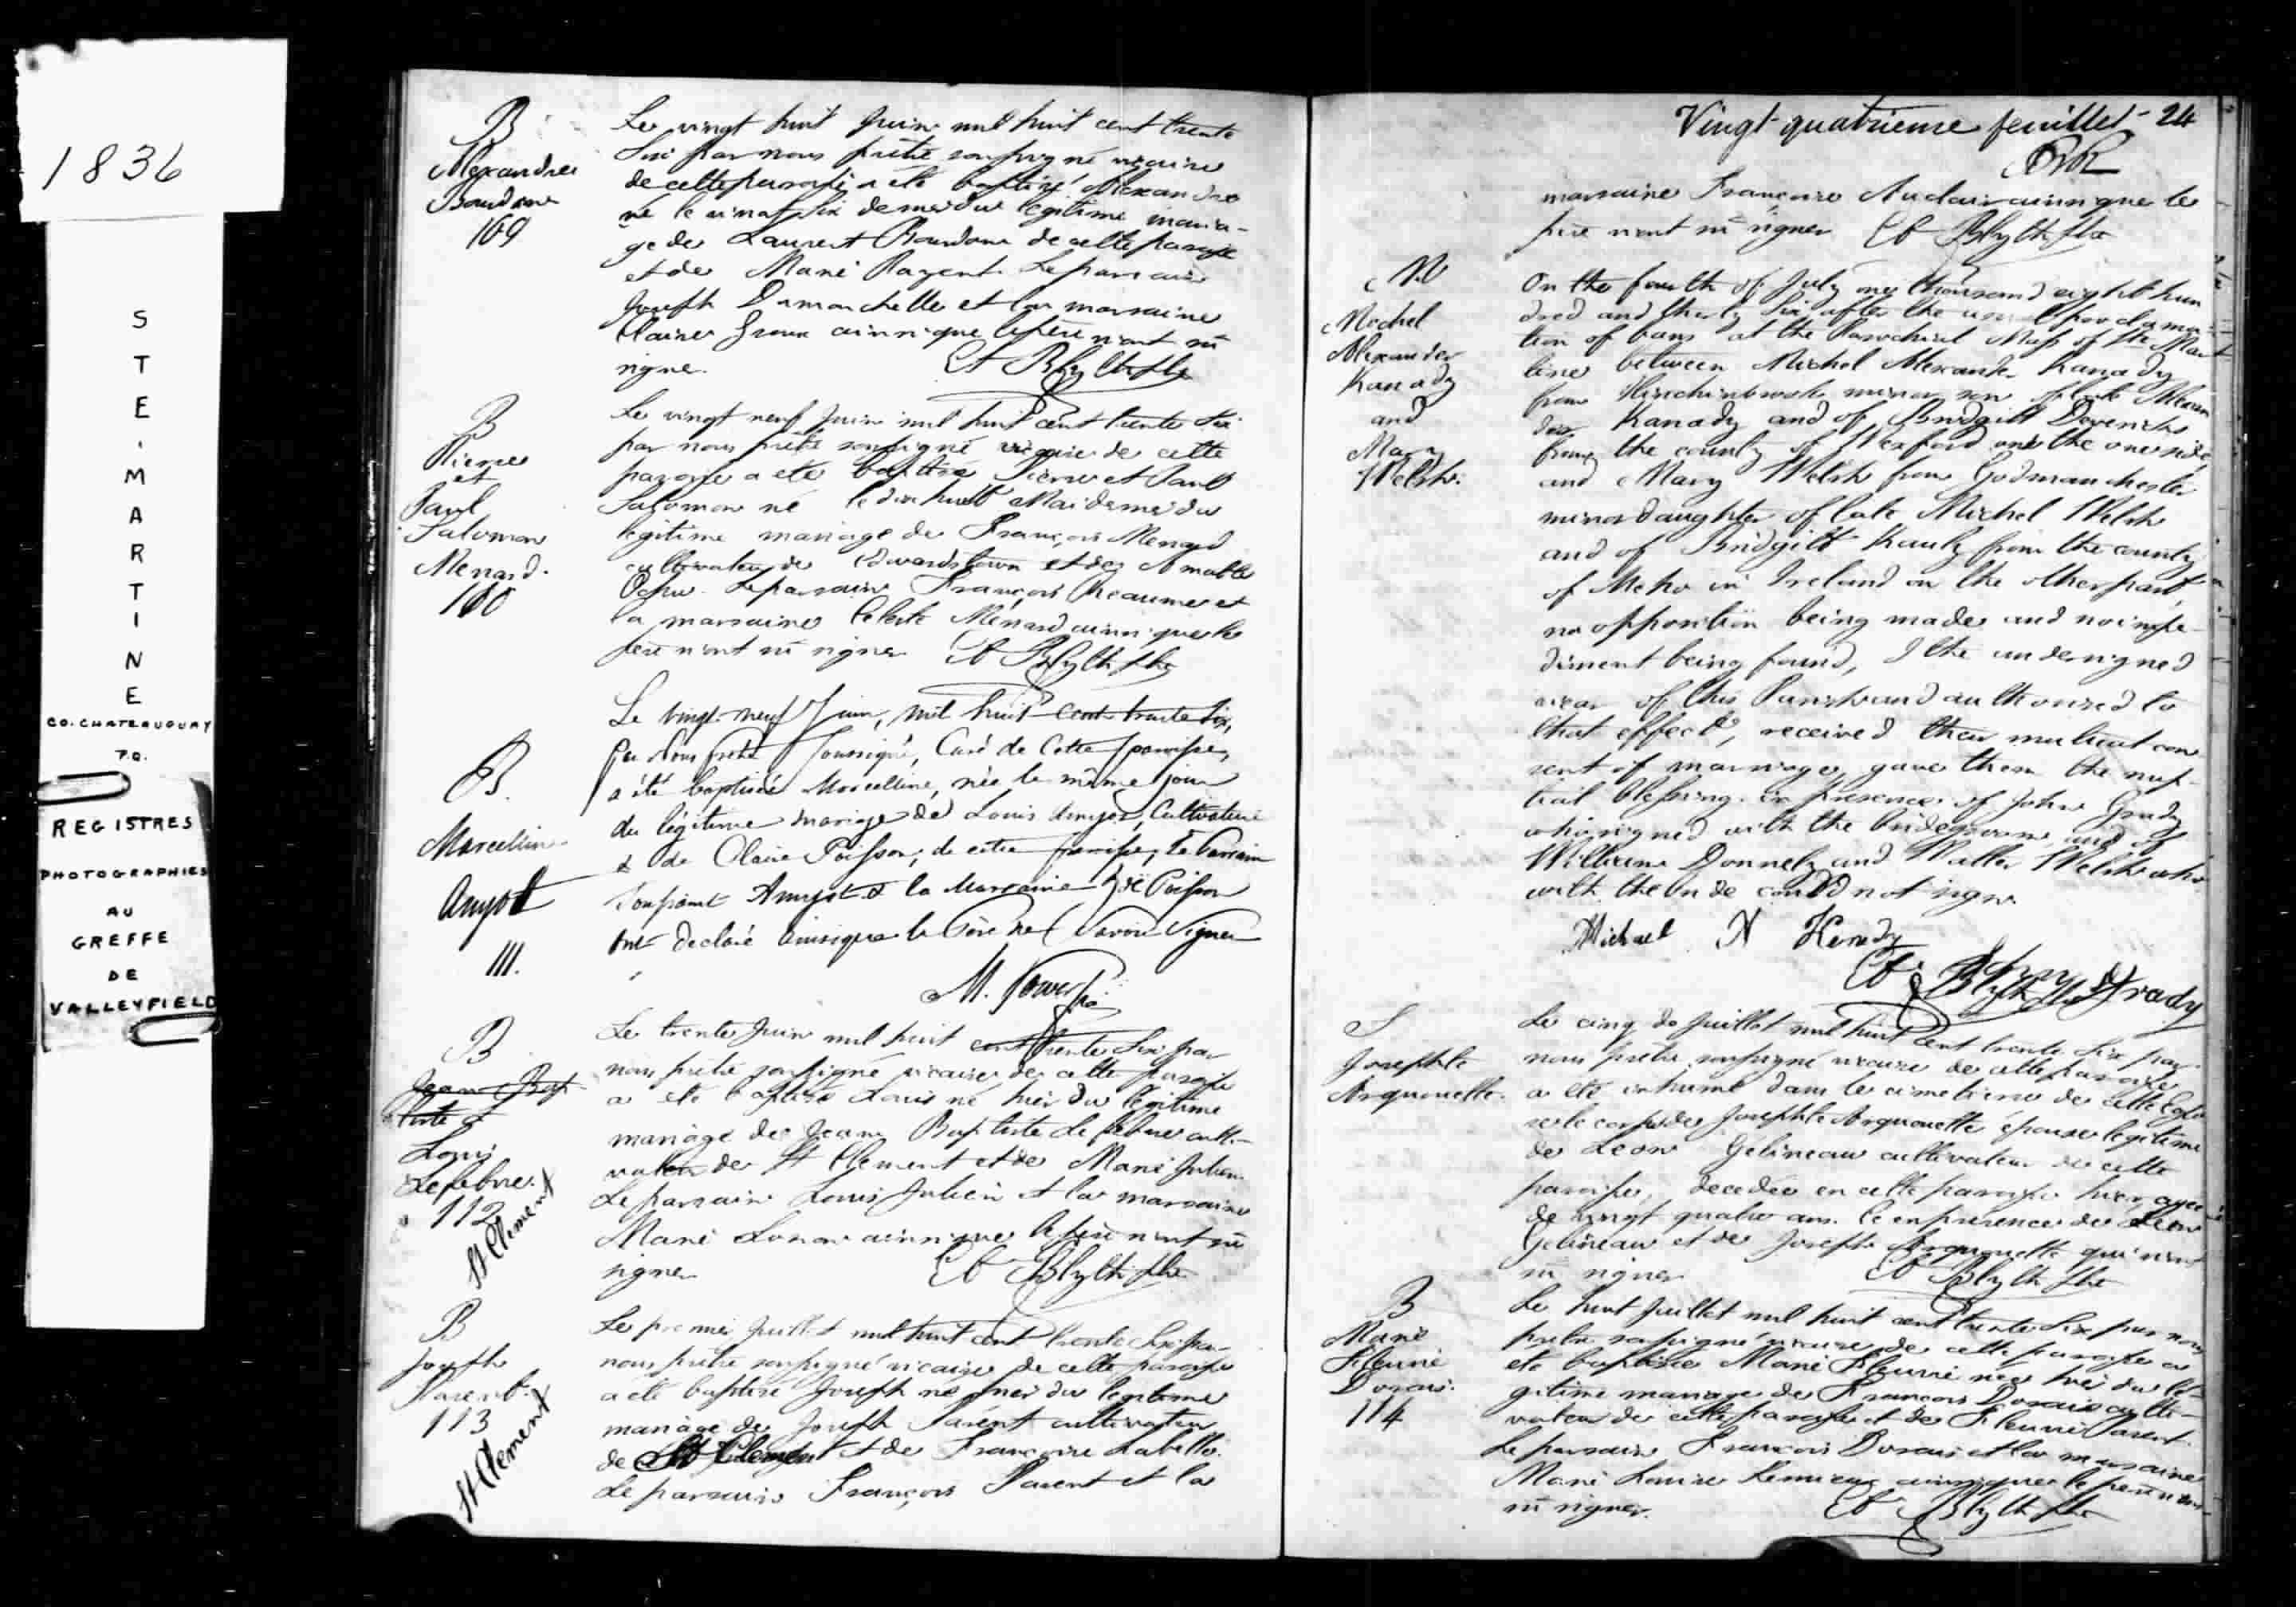 1836
STE. MARTINE
CO. CHATEAUGUAY
P.Q.
REGISTRES
PHOTOGRAPHIES
AU
GREFFE
DE
VALLEYFIELD
B
Alexandre
Boudon
109
Le vingt huit Juin mil huit cent trente
Six par nous prêtre soussigné vicaire
de cette paroisse a été baptisé Alexandre
né le vingt six de mai du légitime maria-
ge de Laurent de cette paroisse
et de Marie Payent. Le parrain
Joseph Damouchelle et la marraine
Claire Groux ainsi que le père n'ont su
signer. Et Blyth ptre
B
Pierre
et
Paul
Salomon
Menard.
100
Le vingt neuf Juin mil huit cent trente Six
par nous prêtre soussigné vicaire de cette
paroisse a été baptisé Pierre et Paul
Salomon né le dix huit Mai dernier du
légitime mariage de François Menard
cultivateur de Edwardstown et de Amable
Le parrain François Reaume et
la marraine Celeste Ménard ainsi que le
père n'ont su signer Et Blyth ptre
B.
Marcelline
Amyot
111.
Le vingt-neuf Juin, mil huit cent trente six,
par Nous prêtre Soussigné, Curé de Cette paroisse,
a été baptisée Marcelline, née le même jour
du légitime mariage de Louis Amyot, Cultivateur
& de Claire Poisson, de cette paroisse; le Parrain
Toussaint Amyot & la Marraine Zoë Poisson
ont declaré ainsique le Père ne Savoir Signer
M. Power Ptre
B
Jean Bap
tiste
Louis
Lefebvre.
112
St Clement
Le trente Juin mil huit cent trente Six par
nous prêtre soussigné vicaire de cette paroisse
a été baptisé Louis né hier du légitime
mariage de Jean Baptiste Lefebvre culti-
vateur de St Clement et de Marie Julien.
Le parrain Louis Julien et la marraine
Marie ainsi que le père n'ont su
signer Et Blyth ptre
B
Joseph
Parent.
113
St Clement
Le premier Juillet mil huit cent trente Six par
nous prêtre soussigné vicaire de cette paroisse
a été baptisé Joseph né hier du légitime
mariage de Joseph Parent cultivateur
de St Clement et de Françoise Labelle.
Le parrain François Parent et la
Vingt-quatrieme feuillet - 24
marraine Françoise ainsi que le
père n'ont su signer Et Blyth ptre
M
Michel
Alexander
Kanady
and
Mary
Welsh.
On the fourth of July one thousand eight hun
dred and thirty Six after the usual proclama
tion of bans at the Parochial Mass of Ste Mart
tine between Michel Alexander Kanady
from Hinchinbrook minor son of late Alexan
der Kanady and of Bridgitt
from the county of Wexford on the one side,
and Mary Welsh from Godmanchester
minor daughter of late Michel Welsh
and of Bridgitt from the county
of Meho in Ireland on the other part,
no opposition being made and no impe-
diment being found, I the undersigned
vicar of this Parish and authorised to
that effect, received their mutual con
sent of marriage, gave them the nup-
tial blessing in presence of John Grady
who signed with the bridegroom and of
William Donnely and Walter Welsh who
with the bride could not sign.
Michael Kenedy
John Grady
Et Blyth ptre
S
Josephte
Arquouette.
Le cinq de Juillet mil huit cent trente Six par
nous prêtre soussigné vicaire de cette paroisse
a été inhumé dans le cimetière de cette Egli
se le corps de Josephte Arquouette épouse légitime
de Leon Gélineau cultivateur de cette
paroisse, decedée en cette paroisse hier, agée
de vingt quatre ans. Ce en présence de Léon
Gélineau et de Joseph Arquouette qui n'ont
su signer Et Blyth ptre
B
Marie
Fleurie
Dorais.
114
Le huit Juillet mil huit cent trente Six par nous
prêtre soussigné vicaire de cette paroisse a
été baptisée Marie Fleurie née hier du lé-
gitime mariage de François Dorais culti-
vateur de cette paroisse et de Fleurie Parent.
Le parrain François Dorais et la marraine
Marie Louise Lemieux ainsi que le père n'ont
su signer. Et Blyth ptre